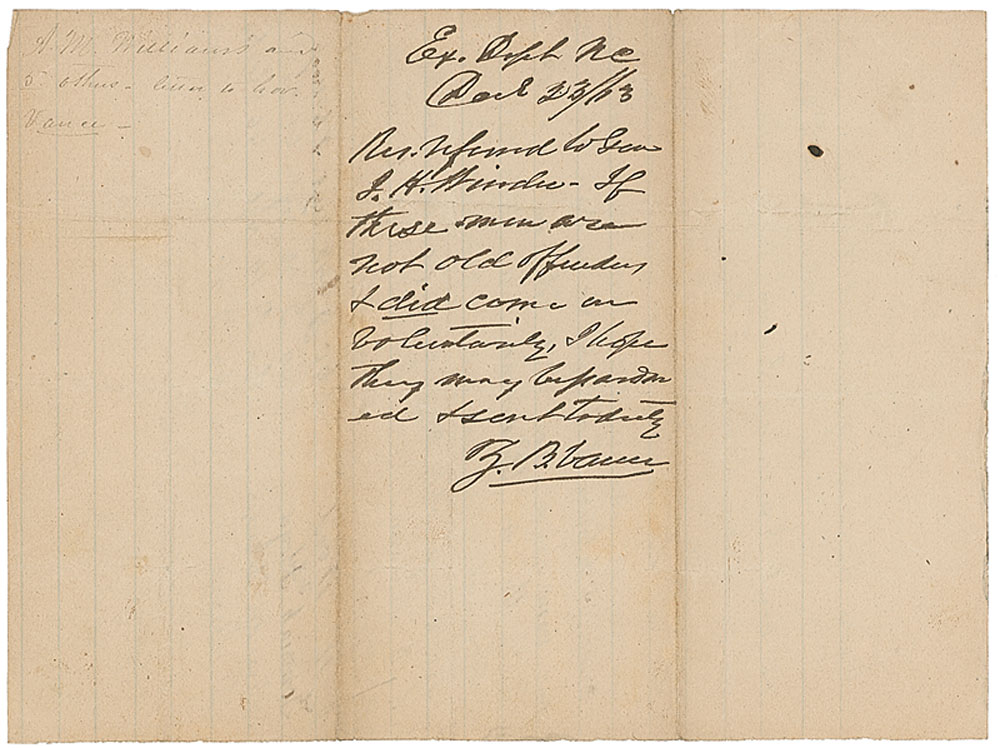 A. M. Williams & any
5 others - letter to Gov.
Vance -
Ex. Dept NC
Dec 23/63
Res. referred to Gen
J. H. Winder - If
these men are
not old offenders
& did come in
voluntarily, I hope
they may be pardon
ed & sent to duty
Z. B. Vance